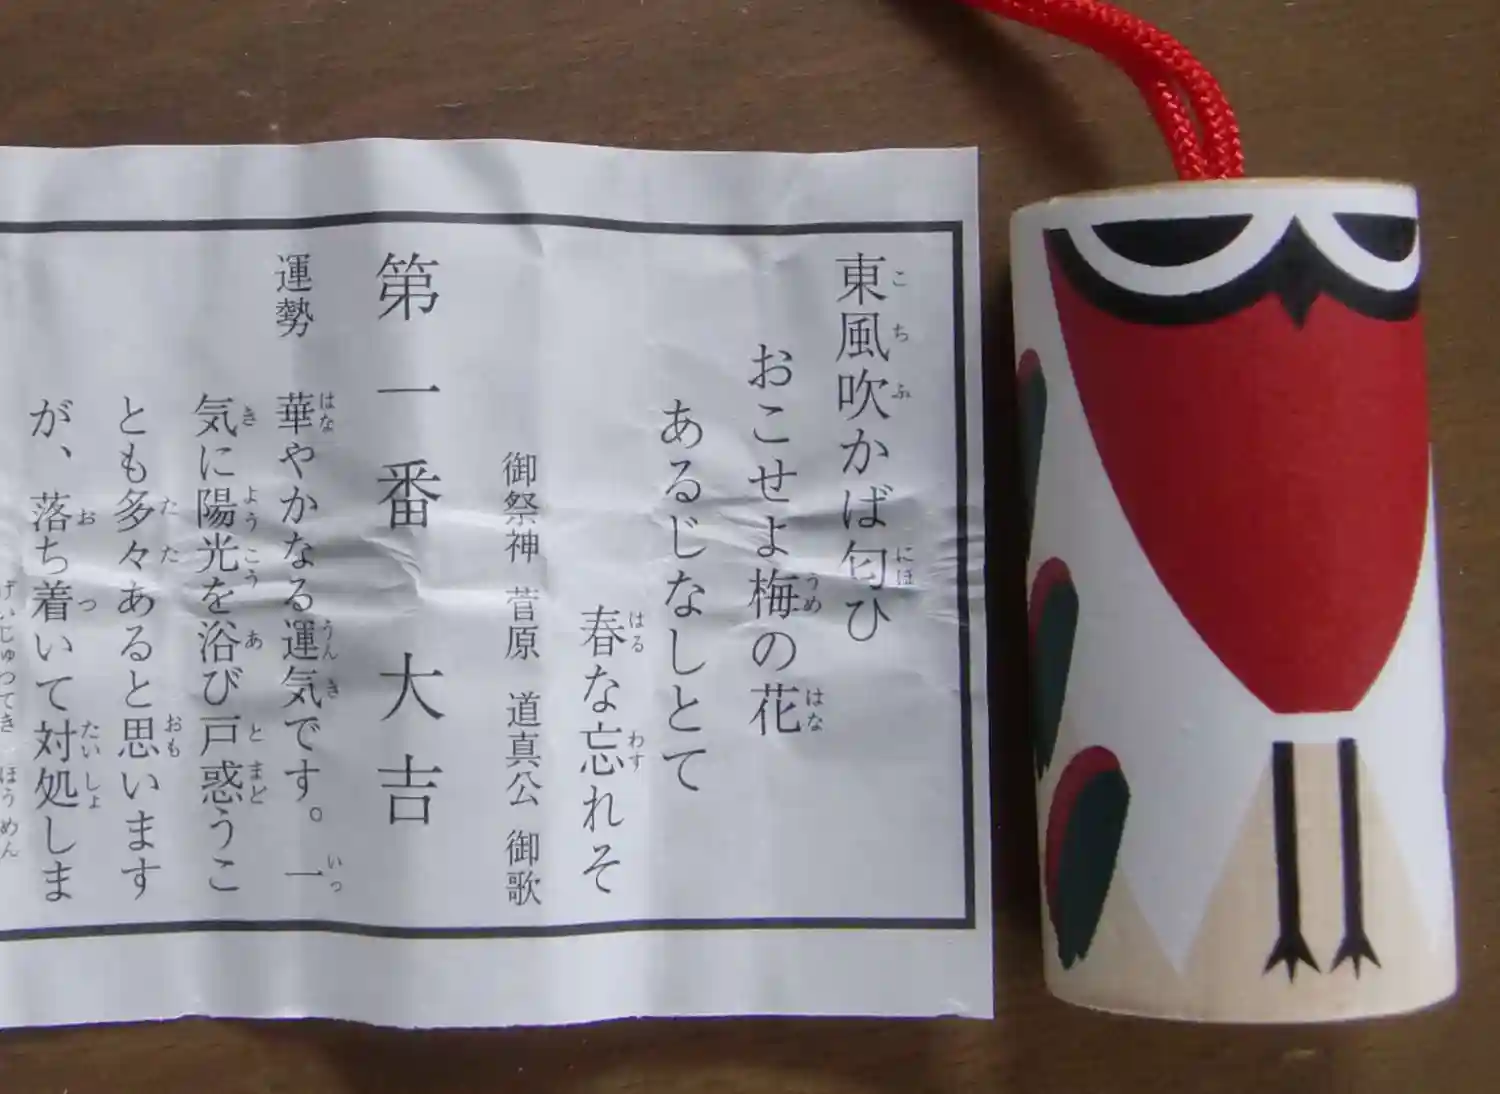 東風吹かば匂ひ
おこせよ梅の花
あるじなしとて
春な忘れそ
御祭神 菅原 道真公 御歌
第一番 大吉
運勢 華やかなる運気です。一
気に陽光を浴び戸惑うこ
とも多々あると思います
が、落ち着いて対処しま